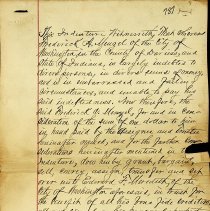 This Indenture Witnesseth, That whereas
Frederick A. Mengel of the City of
Washington in the County of Daviess, and
State of Indiana, is largely indebted to
diverse persons, in diverse sums of money,
and is in embarrassed and failing
circumstances, and unable to pay his
said indebtedness. Now therefore, the
said Frederick A. Mengel, for and in con-
sideration of the sum of one dollar to him
in hand paid by the assignee and trustee
hereinafter named, and for the further con-
siderations hereinafter mentioned in this
Indenture, does hereby grant, bargain,
sell, convey, assign, transfer and set
over unto Edward of the
City of Washington aforesaid, in trust, for
the benefit of all his bona fide creditors